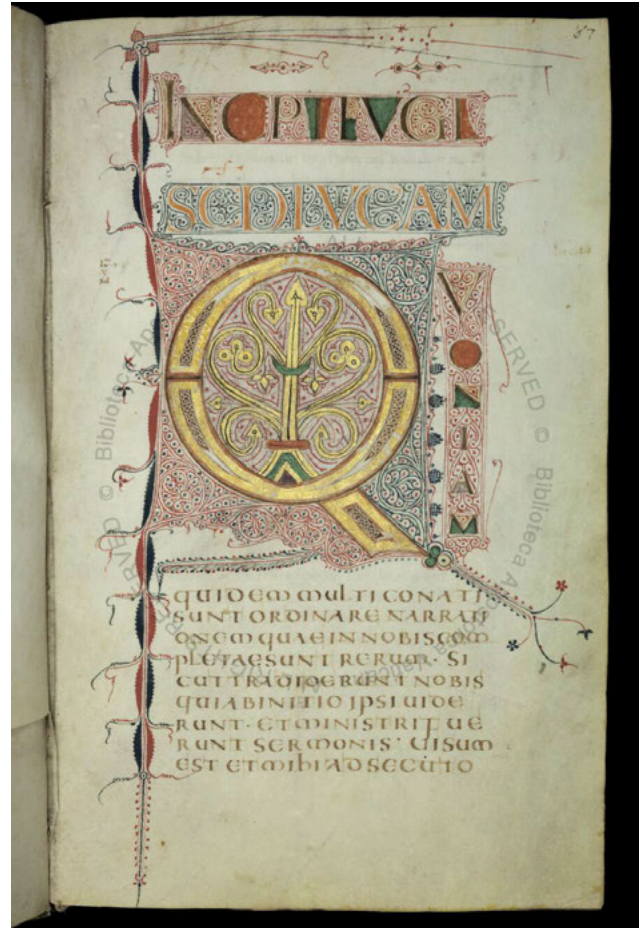 INCIPIT EVGL
SCD LVCAM
QVONIAM
quidem multi conati
sunt ordinare narrati
onem quae in nobis com
pletae sunt rerum · si
cut tradiderunt nobis
qui ab initio ipsi uide
runt · et ministri fue
runt sermonis · uisum
est et mihi adsecuto
© Biblioteca Apo
SERVED © Biblioteca A